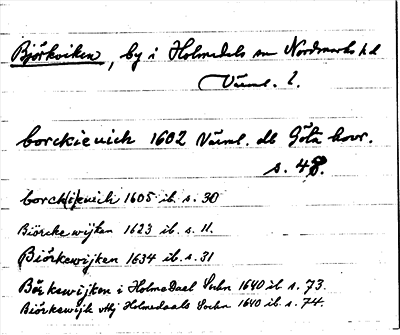 Björkviken, by i Holmedals sn Nordmarks hd
Värml. l.
borckievich 1602 Värml. db Göta hovr.
s. 48.
borck(i)evich 1605 ib. s. 30
Biörckewijken 1623 ib s. 11.
Biörkewijken 1634 ib. s. 31
Börkewijken i Holmedael Sochn 1640 ib s. 73.
Biörkewijk vthj Holmedaals Sochn 1640 ib. s. 74.